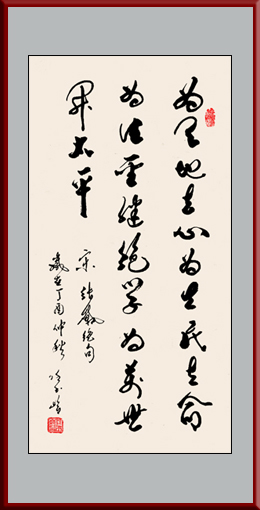 为天地立心为生民立命
为往聖继绝学为萬世
開太平
宋 张载绝句
岁在丁酉仲秋